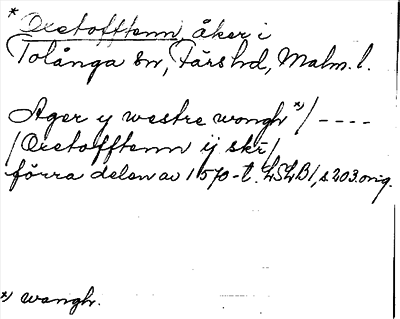 * Oretofftenn, åker i
Tolånga sn, Färs hd, Malm. l.
Ager y westre wongh *) / ----
/ Oretofftenn ij skr /
förra delen av 1570-t. LSLB1, s 203. orig.
*) wangh.